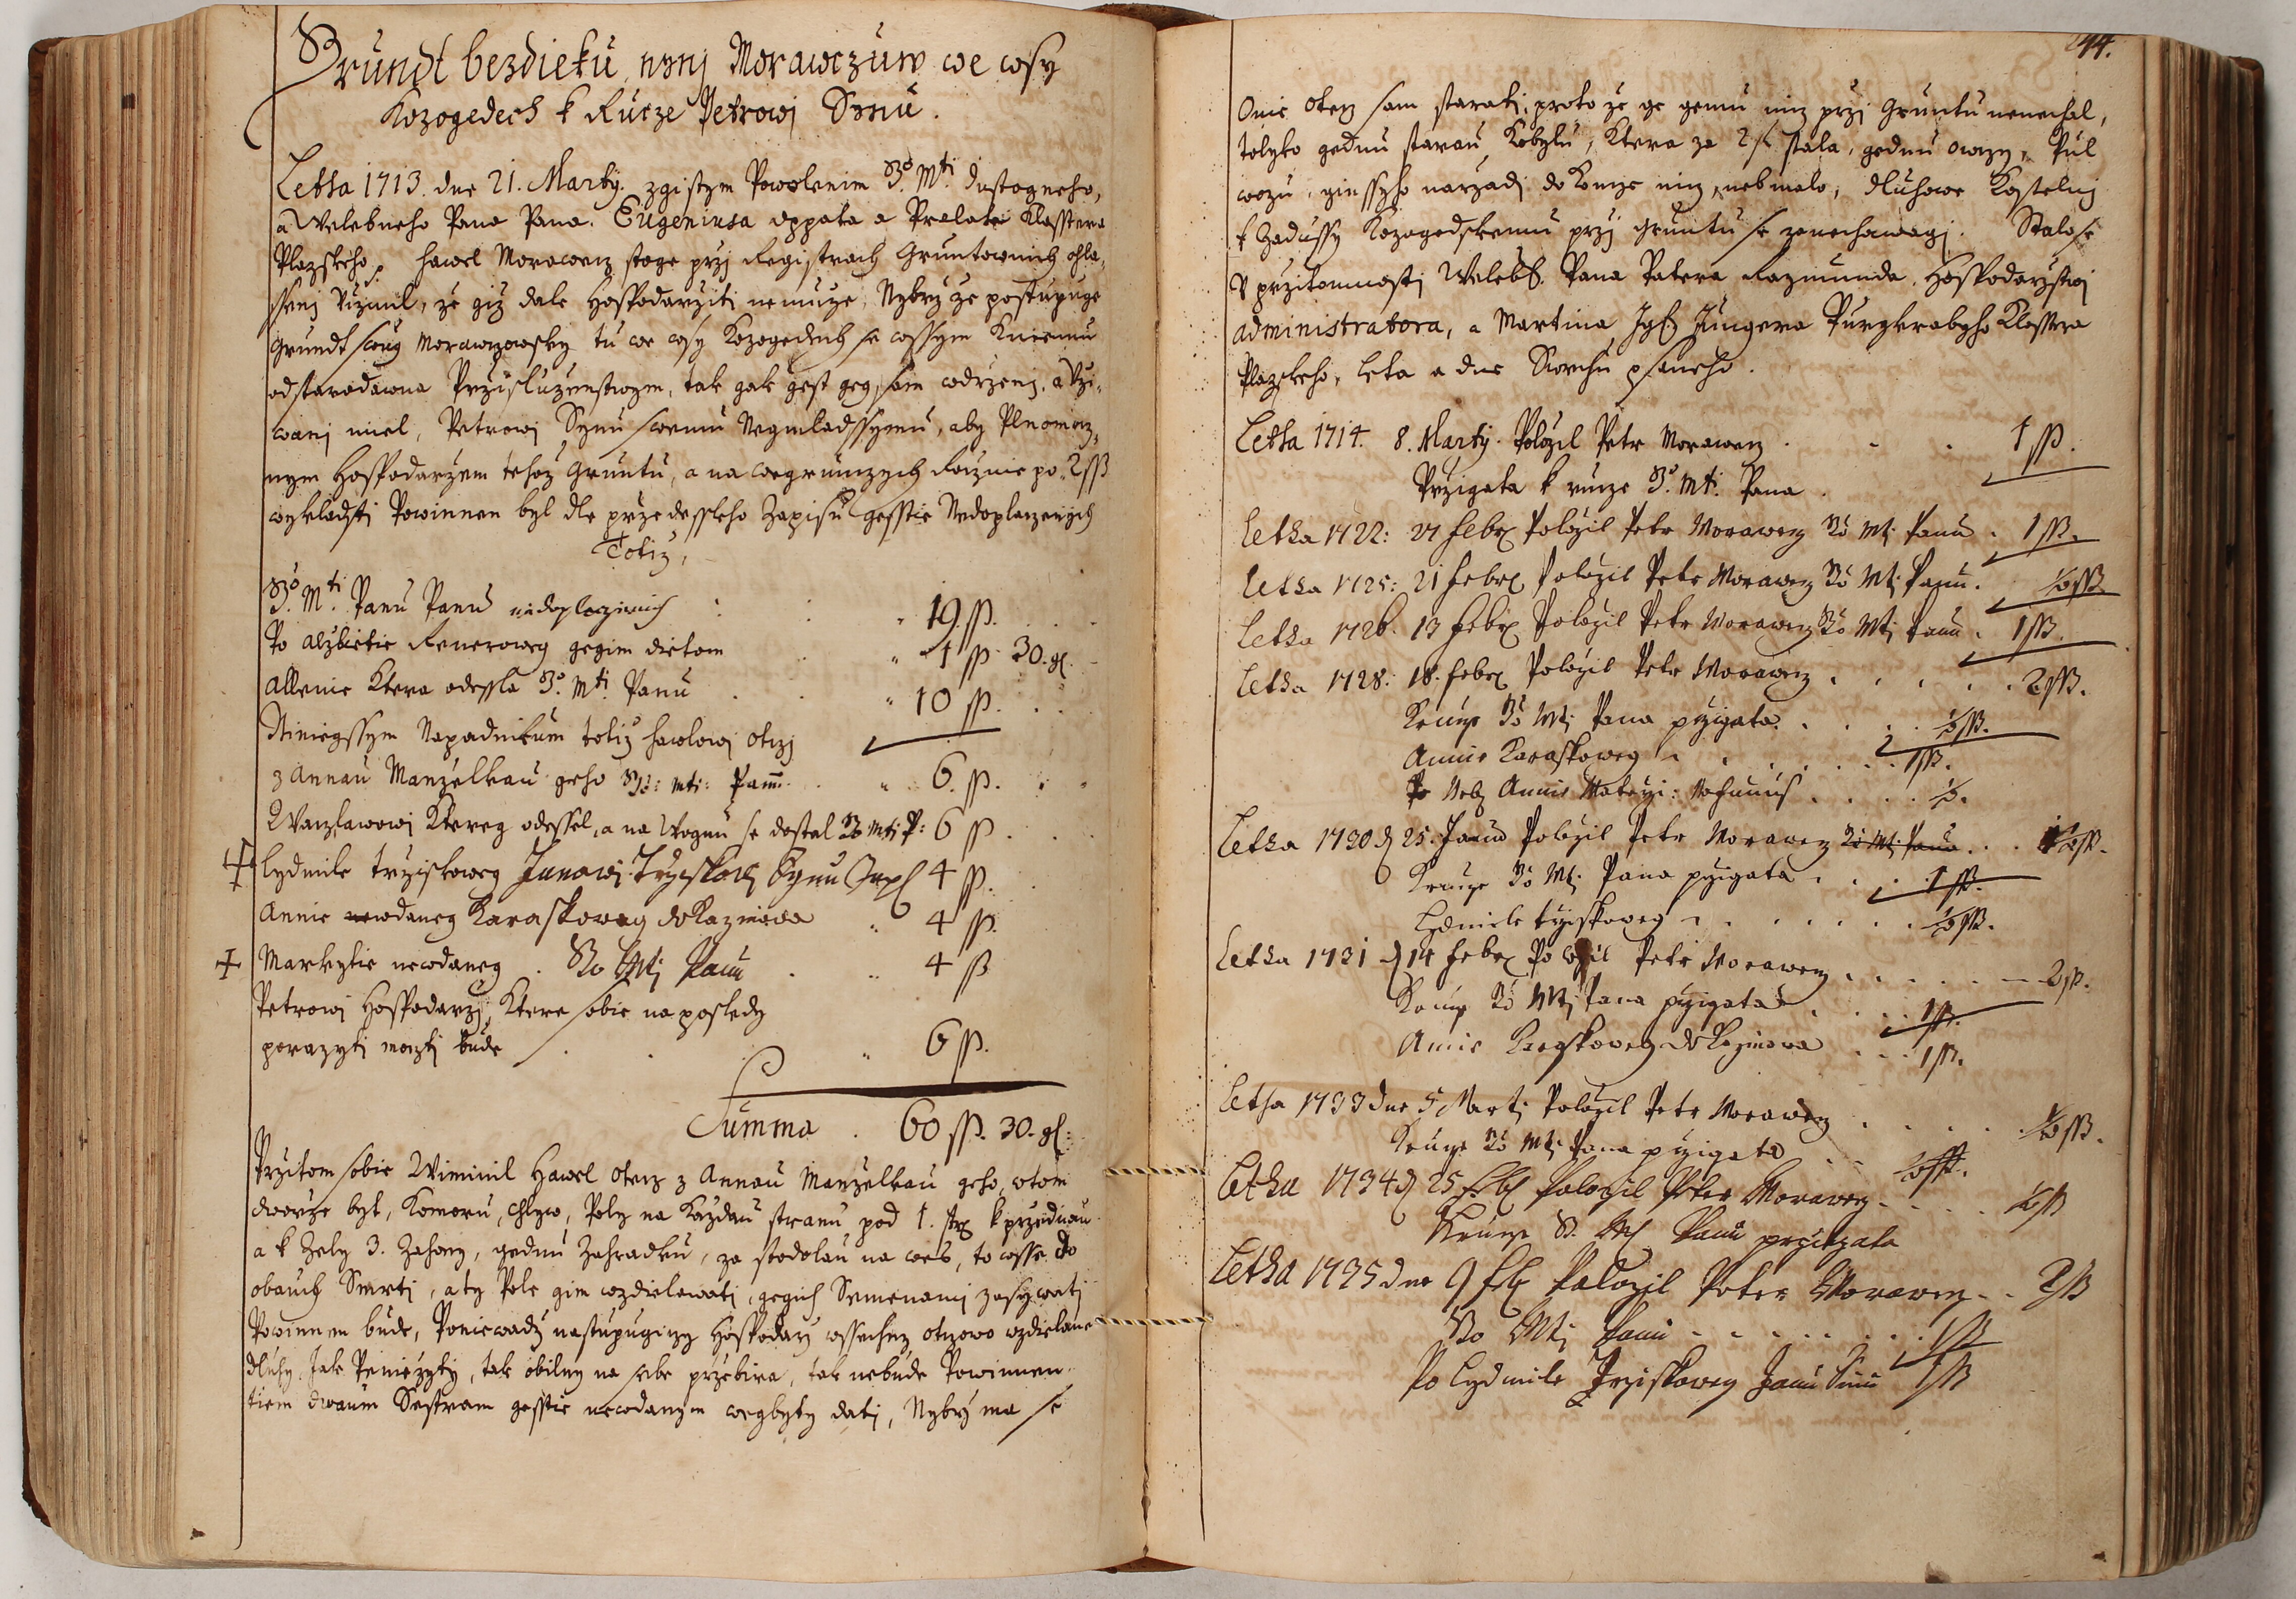 Grundt bezdieku nynj Morawczuw we wsy
Kozogedech k Rucze Petrowj Synu.
Letha 1713. dne 21. Marty. zgistym Powolenim Jo. Mti. Dustogneho,
a Welebneho Pana Pana. Eugeniusa oppata a Pralata Klasstera
Plazskeho, Hawel Morawecz stoge przj Registrach Gruntownich ohla-
ssenj Uczinil, ze giz dale Hospodarziti nemuze, Nybrz ze postupuge
Grundt swug Morawczowsky tu we wsy Kozogedech se wssym Kniemu
odstarodawna Przisluzenstwym, tak gak gest geg sam wdrzenj, a Uzi-
wanj miel, Petrowj Synu swemu Negmladssymu, aby Plnomocz-
nym Hospodarzem tehoz Gruntu, a na wegrunczych Rocznie po 2 ss
wykladsti Powinnen byl dle przedessleho Zapisu gesstie Nedoplaczenych
Totiz,
Jo. Mti. Panu Panu nedoplaczenich . . . 19 ss.
Po Alzbietie Renerowey gegim dietem . . 1 ss. 30. gl.
Allenie Ktera odessla Jo. Mti. Panu . . 10 ss.
Niniegssym Napadnikum totiz Hawlowj otczj
z Annau Manzelkau geho Jo: Mti: Panu . . 6 ss.
Waczlawowj Kterey odessel, a na Wognu se dostal Jo Mti P: 6 ss.
Lydmile Trziskowey Janowi Trziskowi Synu 4 ss.
Annie newdaney Karaskowey do Kaznowa . . 4 ss.
Markytie newdaney . Jo Mti Panu . . 4 ss
Petrowj Hospodarzj, Ktere sobie na posledy
porazyti moczti bude . . . 6 ss.
Summa . 60 ss. 30. gl:
Przitom sobie Wiminil Hawel Otecz z Annau Manzelkau geho, wtom
dworze byt, Komoru, Chlyw, Poly na Kazdau stranu pod 1. str. k przednau
a k Zely 3. Zahony, gednu Zahradku, za stodolau na wes, to wsse do
obauch Smrti, a ty Pole gim wzdielawati, gegich Semenami zasywati
Powinnen bude, Poniewadz nastupugiczy Hospodarz wssechny otczowo wzdielane
dluhy, Jak Peniezyty, tak obilny na sebe przebira, tak nebude Powinnen
tiem dwaum Sestram gesstie newdanym wegbyty dati, Nybrz ma se
44.
Onie otecz sam starati, proto ze ge gemu nicz przj Gruntu nenechal,
tolyko gednu starau Kobylu, Ktera za 2 ss stala, gednu owczy, Pul
wozu, ginssyho narzadj do Koncze nicz, neb malo, dluhowe Kostelnj
k Zadussy Kozogedskemu przj gruntu se zanechawagj. Stalo se
v przitomnosti Weleb. Pana Patera Razmunda, Hospodarzstwj
administratora, a Martina Jungera Purgkrabyho Klasstera
Plazskeho, leta a dne Swrchu psaneho.
Letha 1714. 8. Marty. Polozil Petr Morawecz . . . 1 ss.
Przigata k rucze Jo. Mti. Pana .
Letha 1722: 21 Febr. Polozil Petr Morawecz Jo Mti Panu . 1 ss.
Letha 1725: 21 Febr. Polozil Petr Morawecz Jo Mti Panu . ½ ss.
Letha 1726. 13 Febr. Polozil Petr Morawecz Jo Mti Panu . 1 ss.
Letha 1728: 18. Febr. Polozil Petr Morawecz . . . 2 ss.
K rucze Jo Mti Pana przigata . . . ½ ss.
Annie Karaskowey . . . 1 ss.
Po Neb. Annie . . . ½.
Letha 1730 d. 25. Janua Polozil Petr Morawecz Jo Mti Panu . . 1½ ss.
K rucze Jo Mti Pana przigata . . 1 ss.
Lydmile trziskowey . . . ½ ss.
Letha 1731 d. 14 Febr. Polozil Petr Morawecz . . . 2 ss.
K rucze Jo Mti Pana przigata . . . 1 ss.
Annie Karaskowey do Kaznowa . . 1 ss.
Letha 1733 dne 5 Marti Polozil Petr Morawecz . . . ½ ss.
K rucze Jo Mti Pana przigata . . ½ ss.
Letha 1734 d. 25 Feb. Polozil Peter Morawecz . . . ½ ss
K rucze Jo. Mti Panu przigata
Letha 1735 dne 9 Feb. Polozil Peter Morawecz . . 2 ss
Jo Mti Panu . . . 1 ss
Po Lydmile Trziskowey Janu Sinu 1 ss